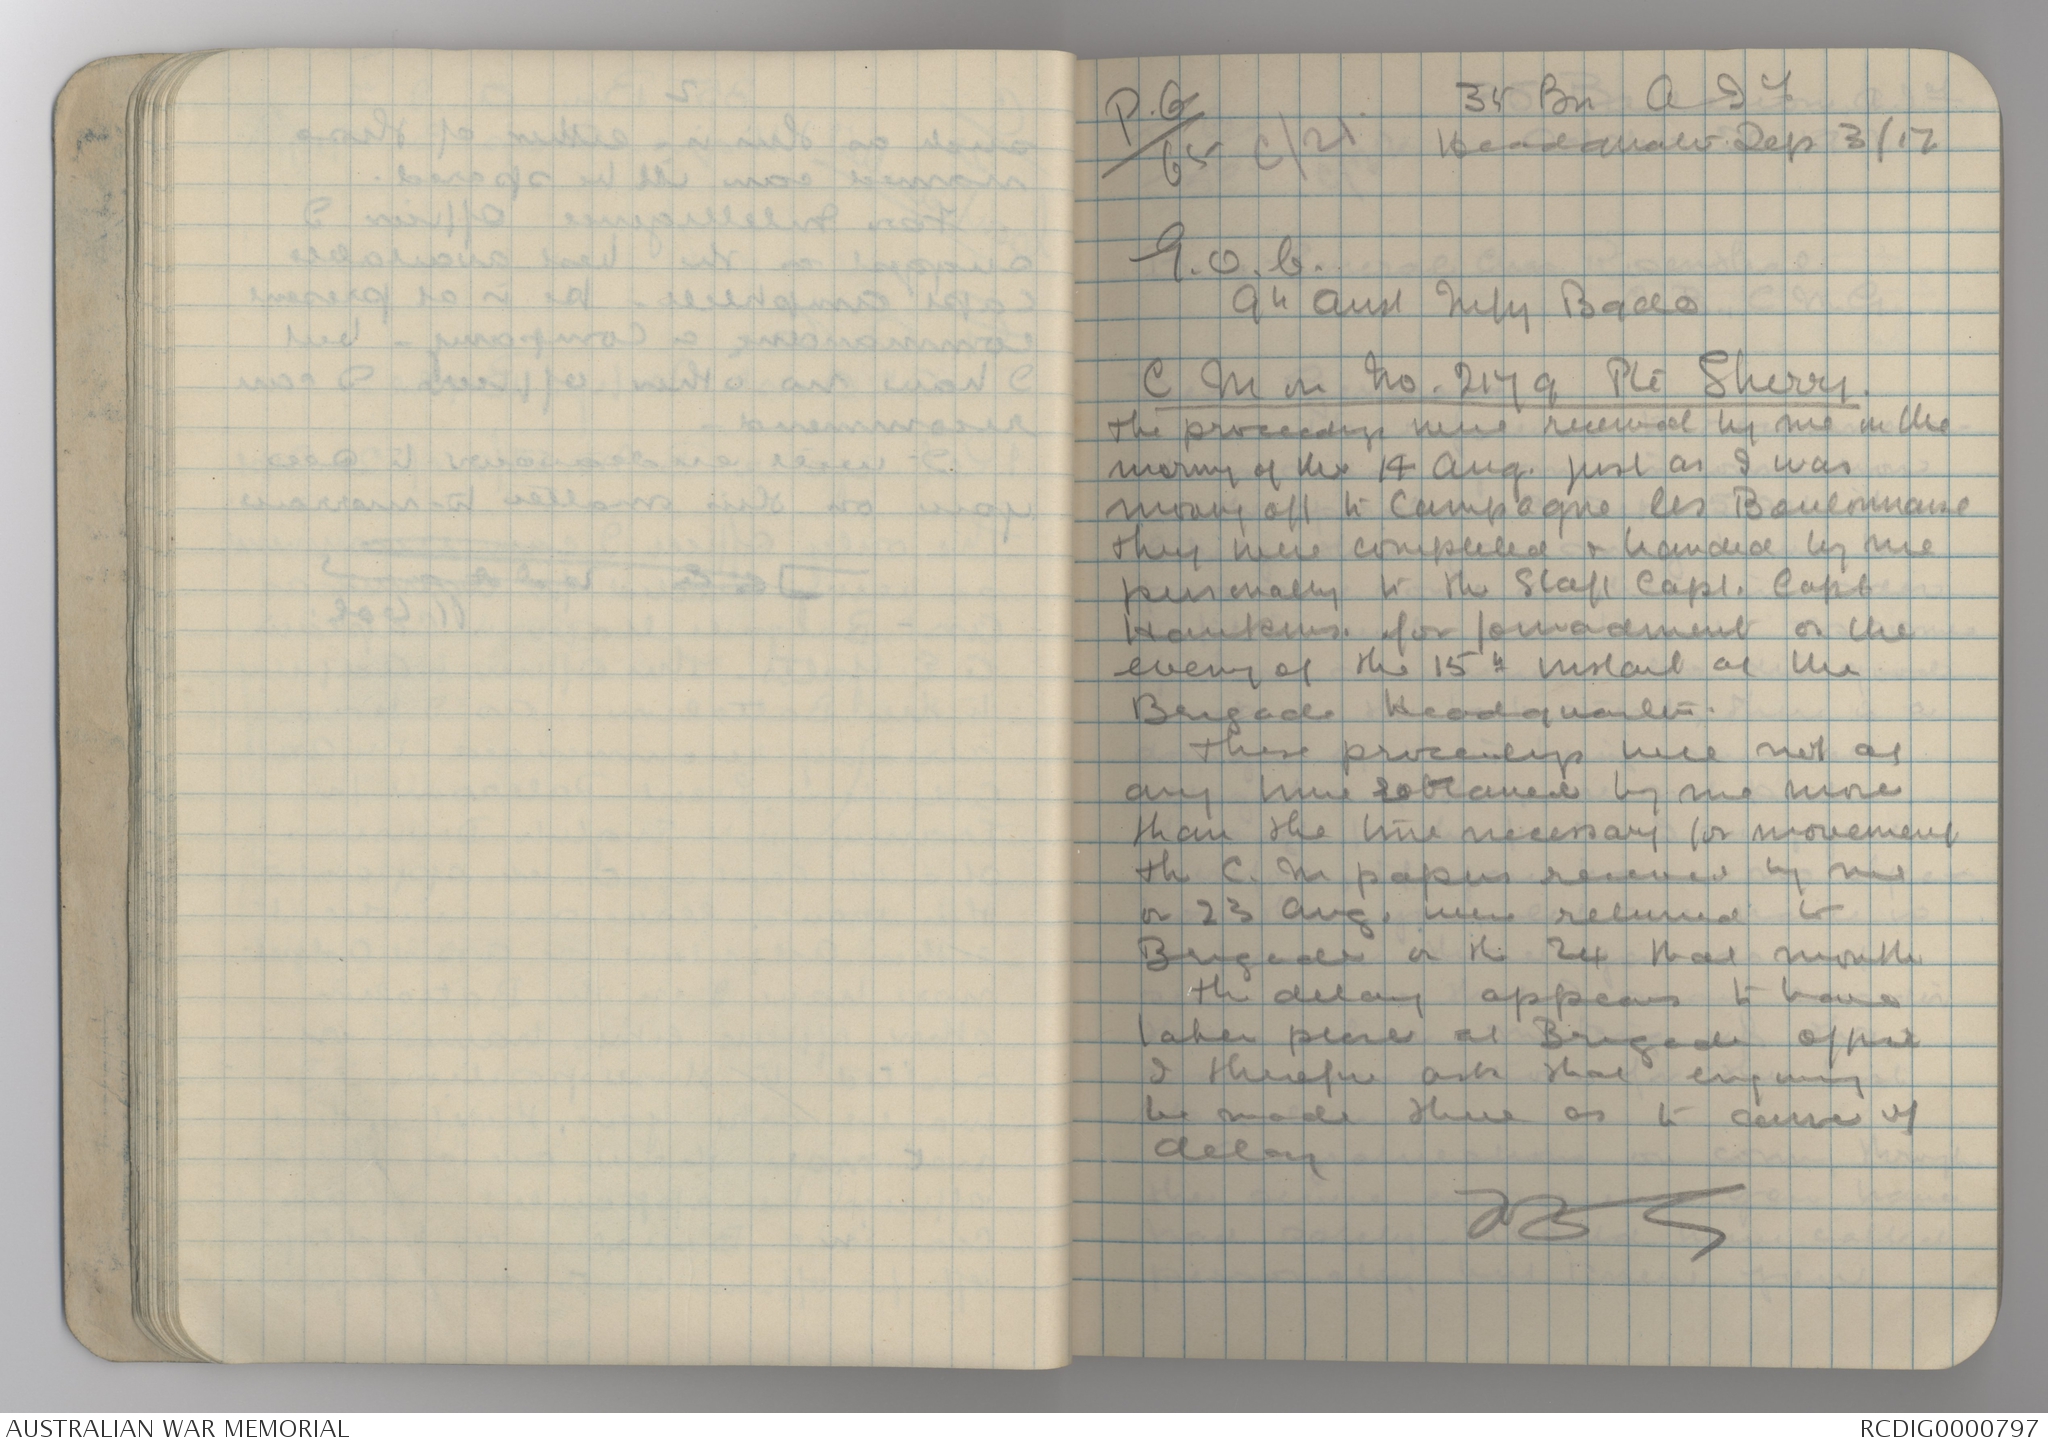 P.G/65 C/21.
35 Bn A I F
Headquarts. Sep 3/17
G.O.C.
9th Aust Infy Bgde
C M on No. 2179 Pte Sherry.
The proceedings were received by me on the
morng of the 14 Aug. just as I was
moving off to Campagne les Boulonnaise
they were completed & handed by me
personally to the Staff Capt. Capt
Hawkins. for forwardment on the
eveng of the 15th instant at the
Brigade Headquarters.
These proceedings were not at
any time retained by me more
than the time necessary for movement
the C. M papers received by me
on 23 Aug. were returned to
Brigade on the 24 that month
The delay appears to have
taken place at Brigade office
I therefore ask that enquiry
be made there as to cause of
delay
AUSTRALIAN WAR MEMORIAL
RCDIG0000797